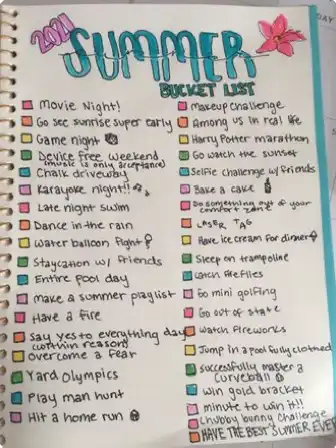 2021
SUMMER
BUCKET LIST
DAY
Movie Night!
Go see sunrise super early
Game night
Device free weekend
(music is only acceptance)
Chalk driveway
Karayoke night!!
Late night swim
Dance in the rain
Water balloon fight
Staycation w/ friends
Entire pool day
make a summer playlist
Have a fire
say yes to everything day
(within reason)
overcome a fear
Yard Olympics
Play man hunt
Hit a home run
Makeup challenge
Among us in real life
Harry Potter marathon
Go watch the sunset
Selfie challenge w/ friends
Bake a cake
Do something out of your
comfort zone
LASER TAG
Have ice cream for dinner
Sleep on trampoline
Catch fireflies
Go mini golfing
Go out of state
Watch Fireworks
Jump in a pool fully clothed
successfully master a
curveball
win gold bracket
minute to win it!!
Chubby bunny challenge
HAVE THE BEST SUMMER EVER